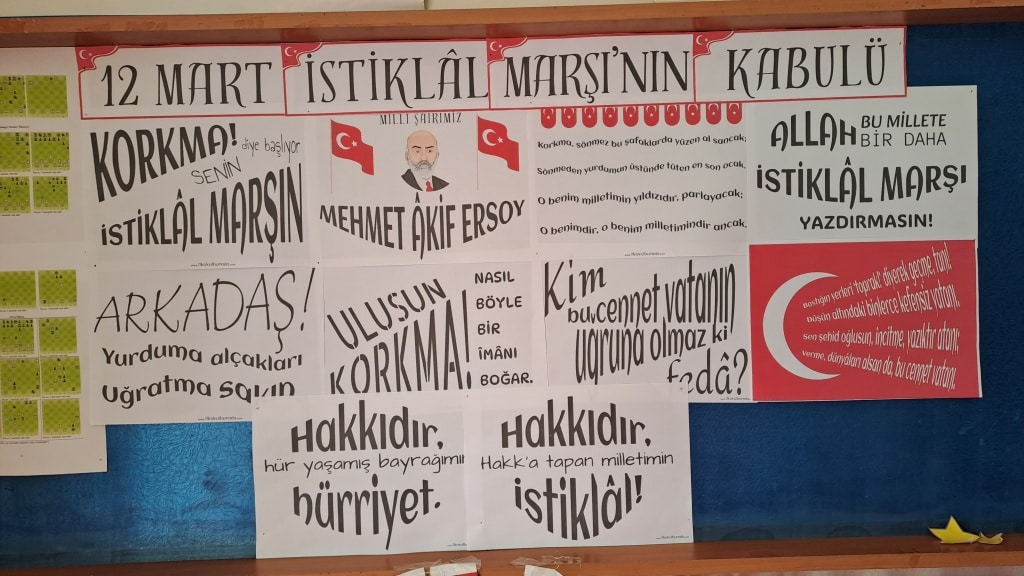 12 MART İSTİKLÂL MARŞI'NIN KABULÜ
KORKMA! diye başlıyor
SENİN
İSTİKLÂL MARŞIN
MİLLİ ŞAİRİMİZ
MEHMET ÂKİF ERSOY
Korkma, sönmez bu şafaklarda yüzen al sancak;
Sönmeden yurdumun üstünde tüten en son ocak.
O benim milletimin yıldızıdır, parlayacak;
O benimdir, o benim milletimindir ancak.
ALLAH BU MİLLETE
BİR DAHA
İSTİKLÂL MARŞI
YAZDIRMASIN!
ARKADAŞ!
Yurduma alçakları
Uğratma sakın
ULUSUN
KORKMA!
NASIL
BÖYLE
BİR
ÎMÂNI
BOĞAR.
Kim
bu cennet vatanın
uğruna olmaz ki
fedâ?
Bastığın yerleri "toprak" diyerek geçme, tanı!
Düşün altındaki binlerce kefensiz yatanı.
Sen şehid oğlusun, incitme, yazıktır atanı;
Verme, dünyâları alsan da, bu cennet vatanı.
Hakkıdır,
hür yaşamış bayrağımın
hürriyet.
Hakkıdır,
Hakk'a tapan milletimin
istiklâl!